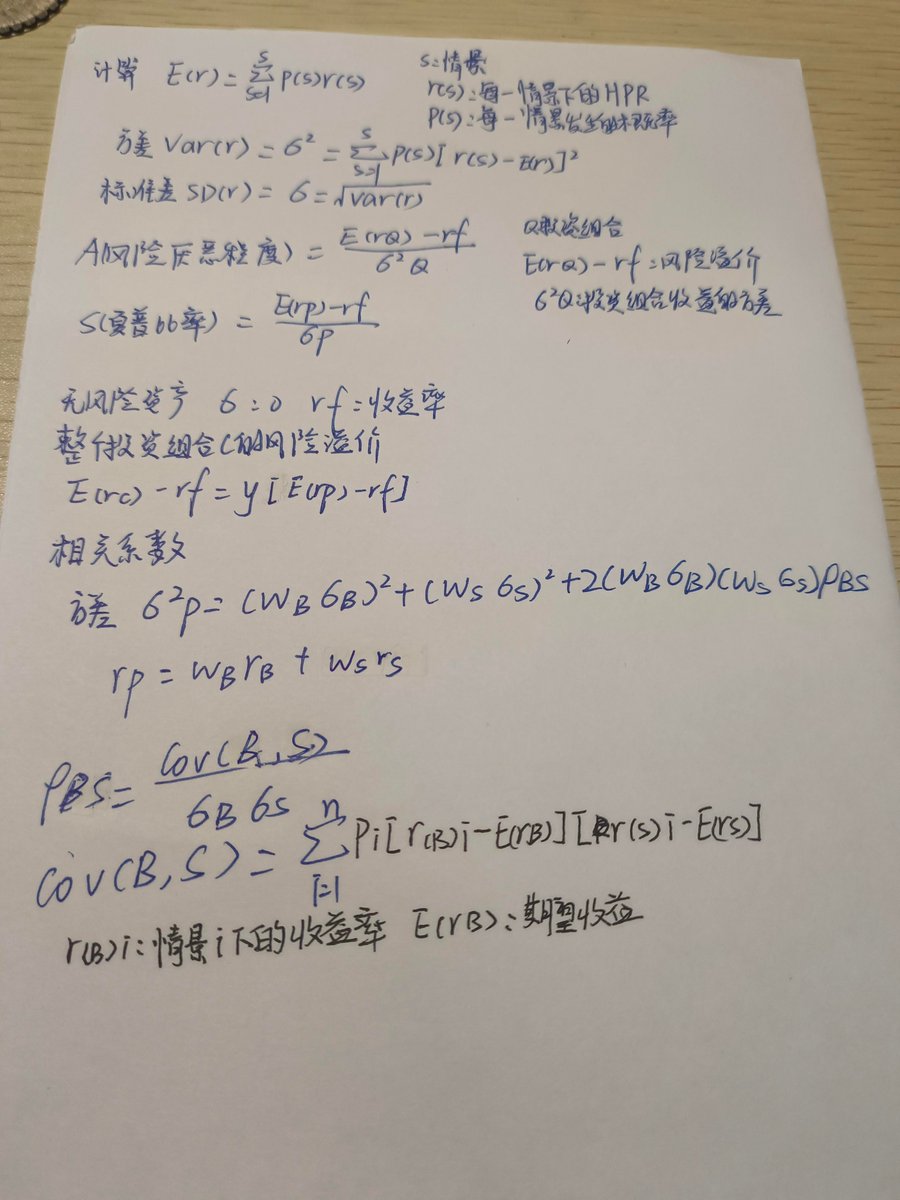 计算 E(r) = ∑ˢₛ₌₁ P(s)r(s)
S:情景
r(s):每一情景下的HPR
P(s):每一情景发生的概率
方差 Var(r) = σ² = ∑ˢₛ₌₁ P(s)[r(s)-E(r)]²
标准差 SD(r) = σ = √Var(r)
A(风险厌恶程度) = (E(rQ)-rf)/(σ²Q)
Q:投资组合
E(rQ)-rf:风险溢价
σ²Q:投资组合收益的方差
S(夏普比率) = (E(rp)-rf)/(σp)
无风险资产 σ=0 rf=收益率
整个投资组合C的风险溢价
E(rc)-rf = y[E(rp)-rf]
相关系数
方差 σ²p = (WBσB)²+(WSσS)²+2(WBσB)(WSσS)ρBS
rp = WBrB + WSrS
ρBS = Cov(B,S)/(σBσS)
Cov(B,S) = ∑ⁿᵢ₌₁ Pi[r(B)i-E(rB)][r(S)i-E(rS)]
r(B)i:情景i下的收益率 E(rB):期望收益